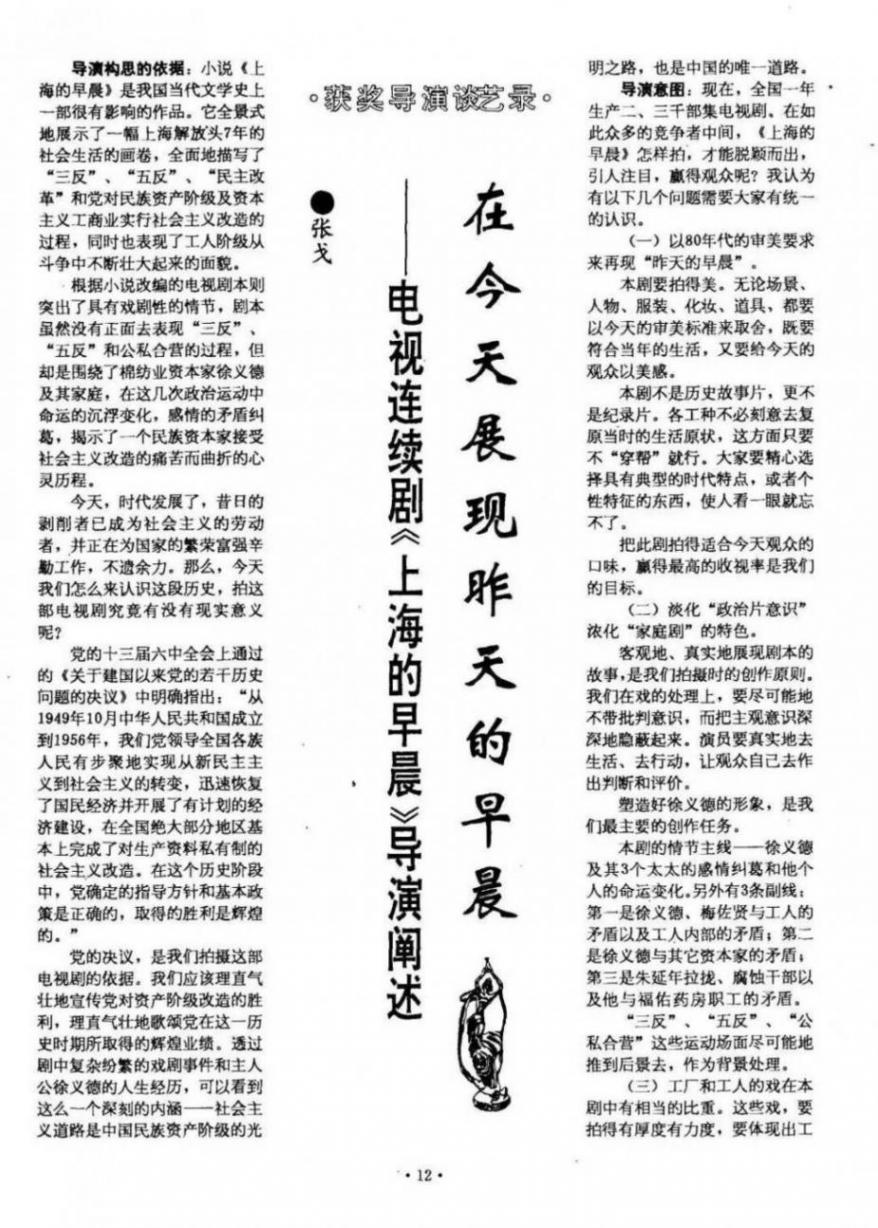 ·获奖导演谈艺录·
在今天展现昨天的早晨
——电视连续剧《上海的早晨》导演阐述
●张戈
导演构思的依据：小说《上
海的早晨》是我国当代文学史上
一部很有影响的作品。它全景式
地展示了一幅上海解放头7年的
社会生活的画卷，全面地描写了
“三反”、“五反”、“民主改
革”和党对民族资产阶级及资本
主义工商业实行社会主义改造的
过程，同时也表现了工人阶级从
斗争中不断壮大起来的面貌。
根据小说改编的电视剧本则
突出了具有戏剧性的情节，剧本
虽然没有正面去表现“三反”、
“五反”和公私合营的过程，但
却是围绕了棉纺业资本家徐义德
及其家庭，在这几次政治运动中
命运的沉浮变化，感情的矛盾纠
葛，揭示了一个民族资本家接受
社会主义改造的痛苦而曲折的心
灵历程。
今天，时代发展了，昔日的
剥削者已成为社会主义的劳动
者，并正在为国家的繁荣富强辛
勤工作，不遗余力。那么，今天
我们怎么来认识这段历史，拍这
部电视剧究竟有没有现实意义
呢？
党的十三届六中全会上通过
的《关于建国以来党的若干历史
问题的决议》中明确指出：“从
1949年10月中华人民共和国成立
到1956年，我们党领导全国各族
人民有步聚地实现从新民主主
义到社会主义的转变，迅速恢复
了国民经济并开展了有计划的经
济建设，在全国绝大部分地区基
本上完成了对生产资料私有制的
社会主义改造。在这个历史阶段
中，党确定的指导方针和基本政
策是正确的，取得的胜利是辉煌
的。”
党的决议，是我们拍摄这部
电视剧的依据。我们应该理直气
壮地宣传党对资产阶级改造的胜
利，理直气壮地歌颂党在这一历
史时期所取得的辉煌业绩。透过
剧中复杂纷繁的戏剧事件和主人
公徐义德的人生经历，可以看到
这么一个深刻的内涵——社会主
义道路是中国民族资产阶级的光
明之路，也是中国的唯一道路。
导演意图：现在，全国一年
生产二、三千部集电视剧。在如
此众多的竞争者中间，《上海的
早晨》怎样拍，才能脱颖而出，
引人注目，赢得观众呢？我认为
有以下几个问题需要大家有统一
的认识。
（一）以80年代的审美要求
来再现“昨天的早晨”。
本剧要拍得美。无论场景、
人物、服装、化妆、道具，都要
以今天的审美标准来取舍，既要
符合当年的生活，又要给今天的
观众以美感。
本剧不是历史故事片，更不
是纪录片。各工种不必刻意去复
原当时的生活原状，这方面只要
不“穿帮”就行。大家要精心选
择具有典型的时代特点，或者个
性特征的东西，使人看一眼就忘
不了。
把此剧拍得适合今天观众的
口味，赢得最高的收视率是我们
的目标。
（二）淡化“政治片意识”
浓化“家庭剧”的特色。
客观地、真实地展现剧本的
故事，是我们拍摄时的创作原则。
我们在戏的处理上，要尽可能地
不带批判意识，而把主观意识深
深地隐蔽起来。演员要真实地去
生活、去行动，让观众自己去作
出判断和评价。
塑造好徐义德的形象，是我
们最主要的创作任务。
本剧的情节主线——徐义德
及其3个太太的感情纠葛和他个
人的命运变化。另外有3条副线：
第一是徐义德、梅佐贤与工人的
矛盾以及工人内部的矛盾；第二
是徐义德与其它资本家的矛盾；
第三是朱延年拉拢、腐蚀干部以
及他与福佑药房职工的矛盾。
“三反”、“五反”、“公
私合营”这些运动场面尽可能地
推到后景去，作为背景处理。
（三）工厂和工人的戏在本
剧中有相当的比重。这些戏，要
拍得有厚度有力度，要体现出工
·12·